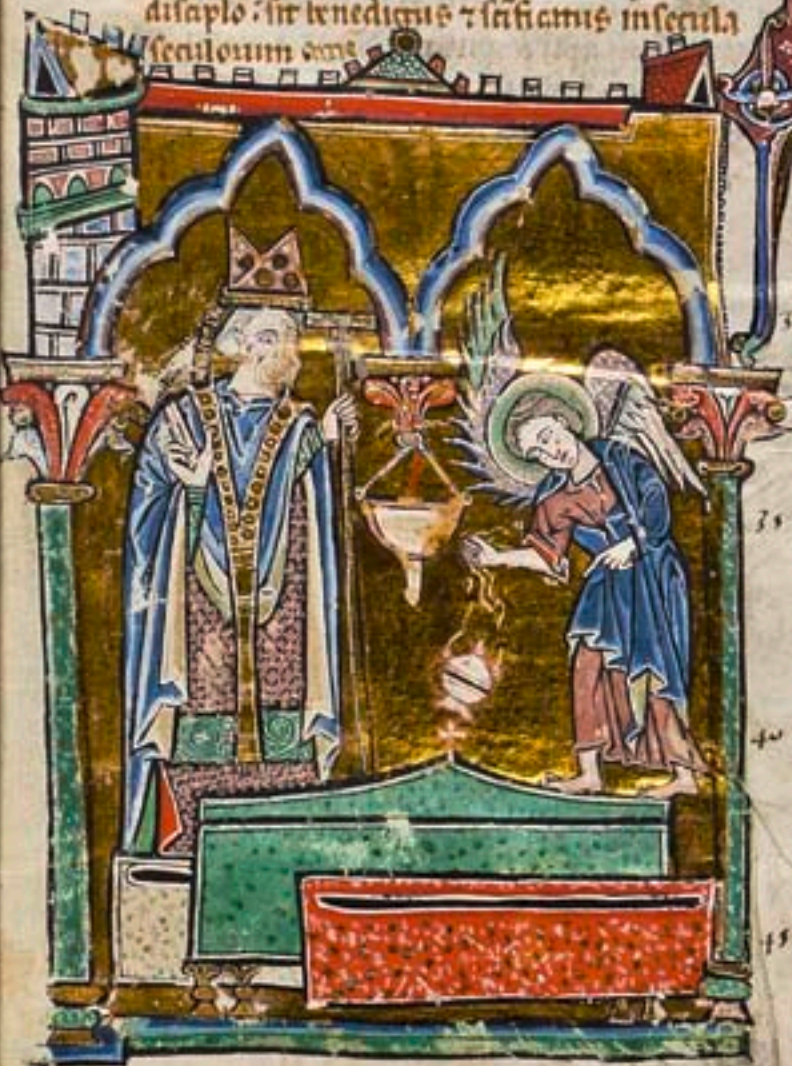 disciplo : sit benedictus ⁊ scificatus in secula
seculorum
35
40
45